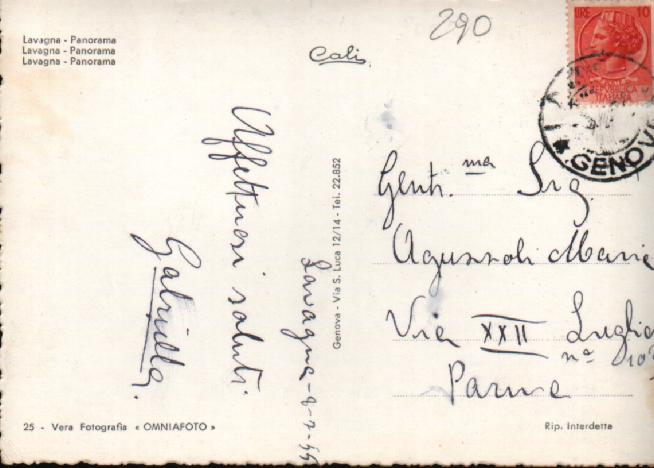 290
Lavagna - Panorama
Lavagna - Panorama
Lavagna - Panorama
Cali
LIRE 10
REPVBBLICA
ITALIANA
GENOV
Affettuosi saluti.
Gabriella.
Lavagna - 8-7-55
Genova - Via S. Luca 12/14 - Tel. 22.852
Gent.ma Sig.
Maria
Via XXII Luglio
nº
Parma
25 - Vera Fotografia « OMNIAFOTO »
Rip. Interdetta